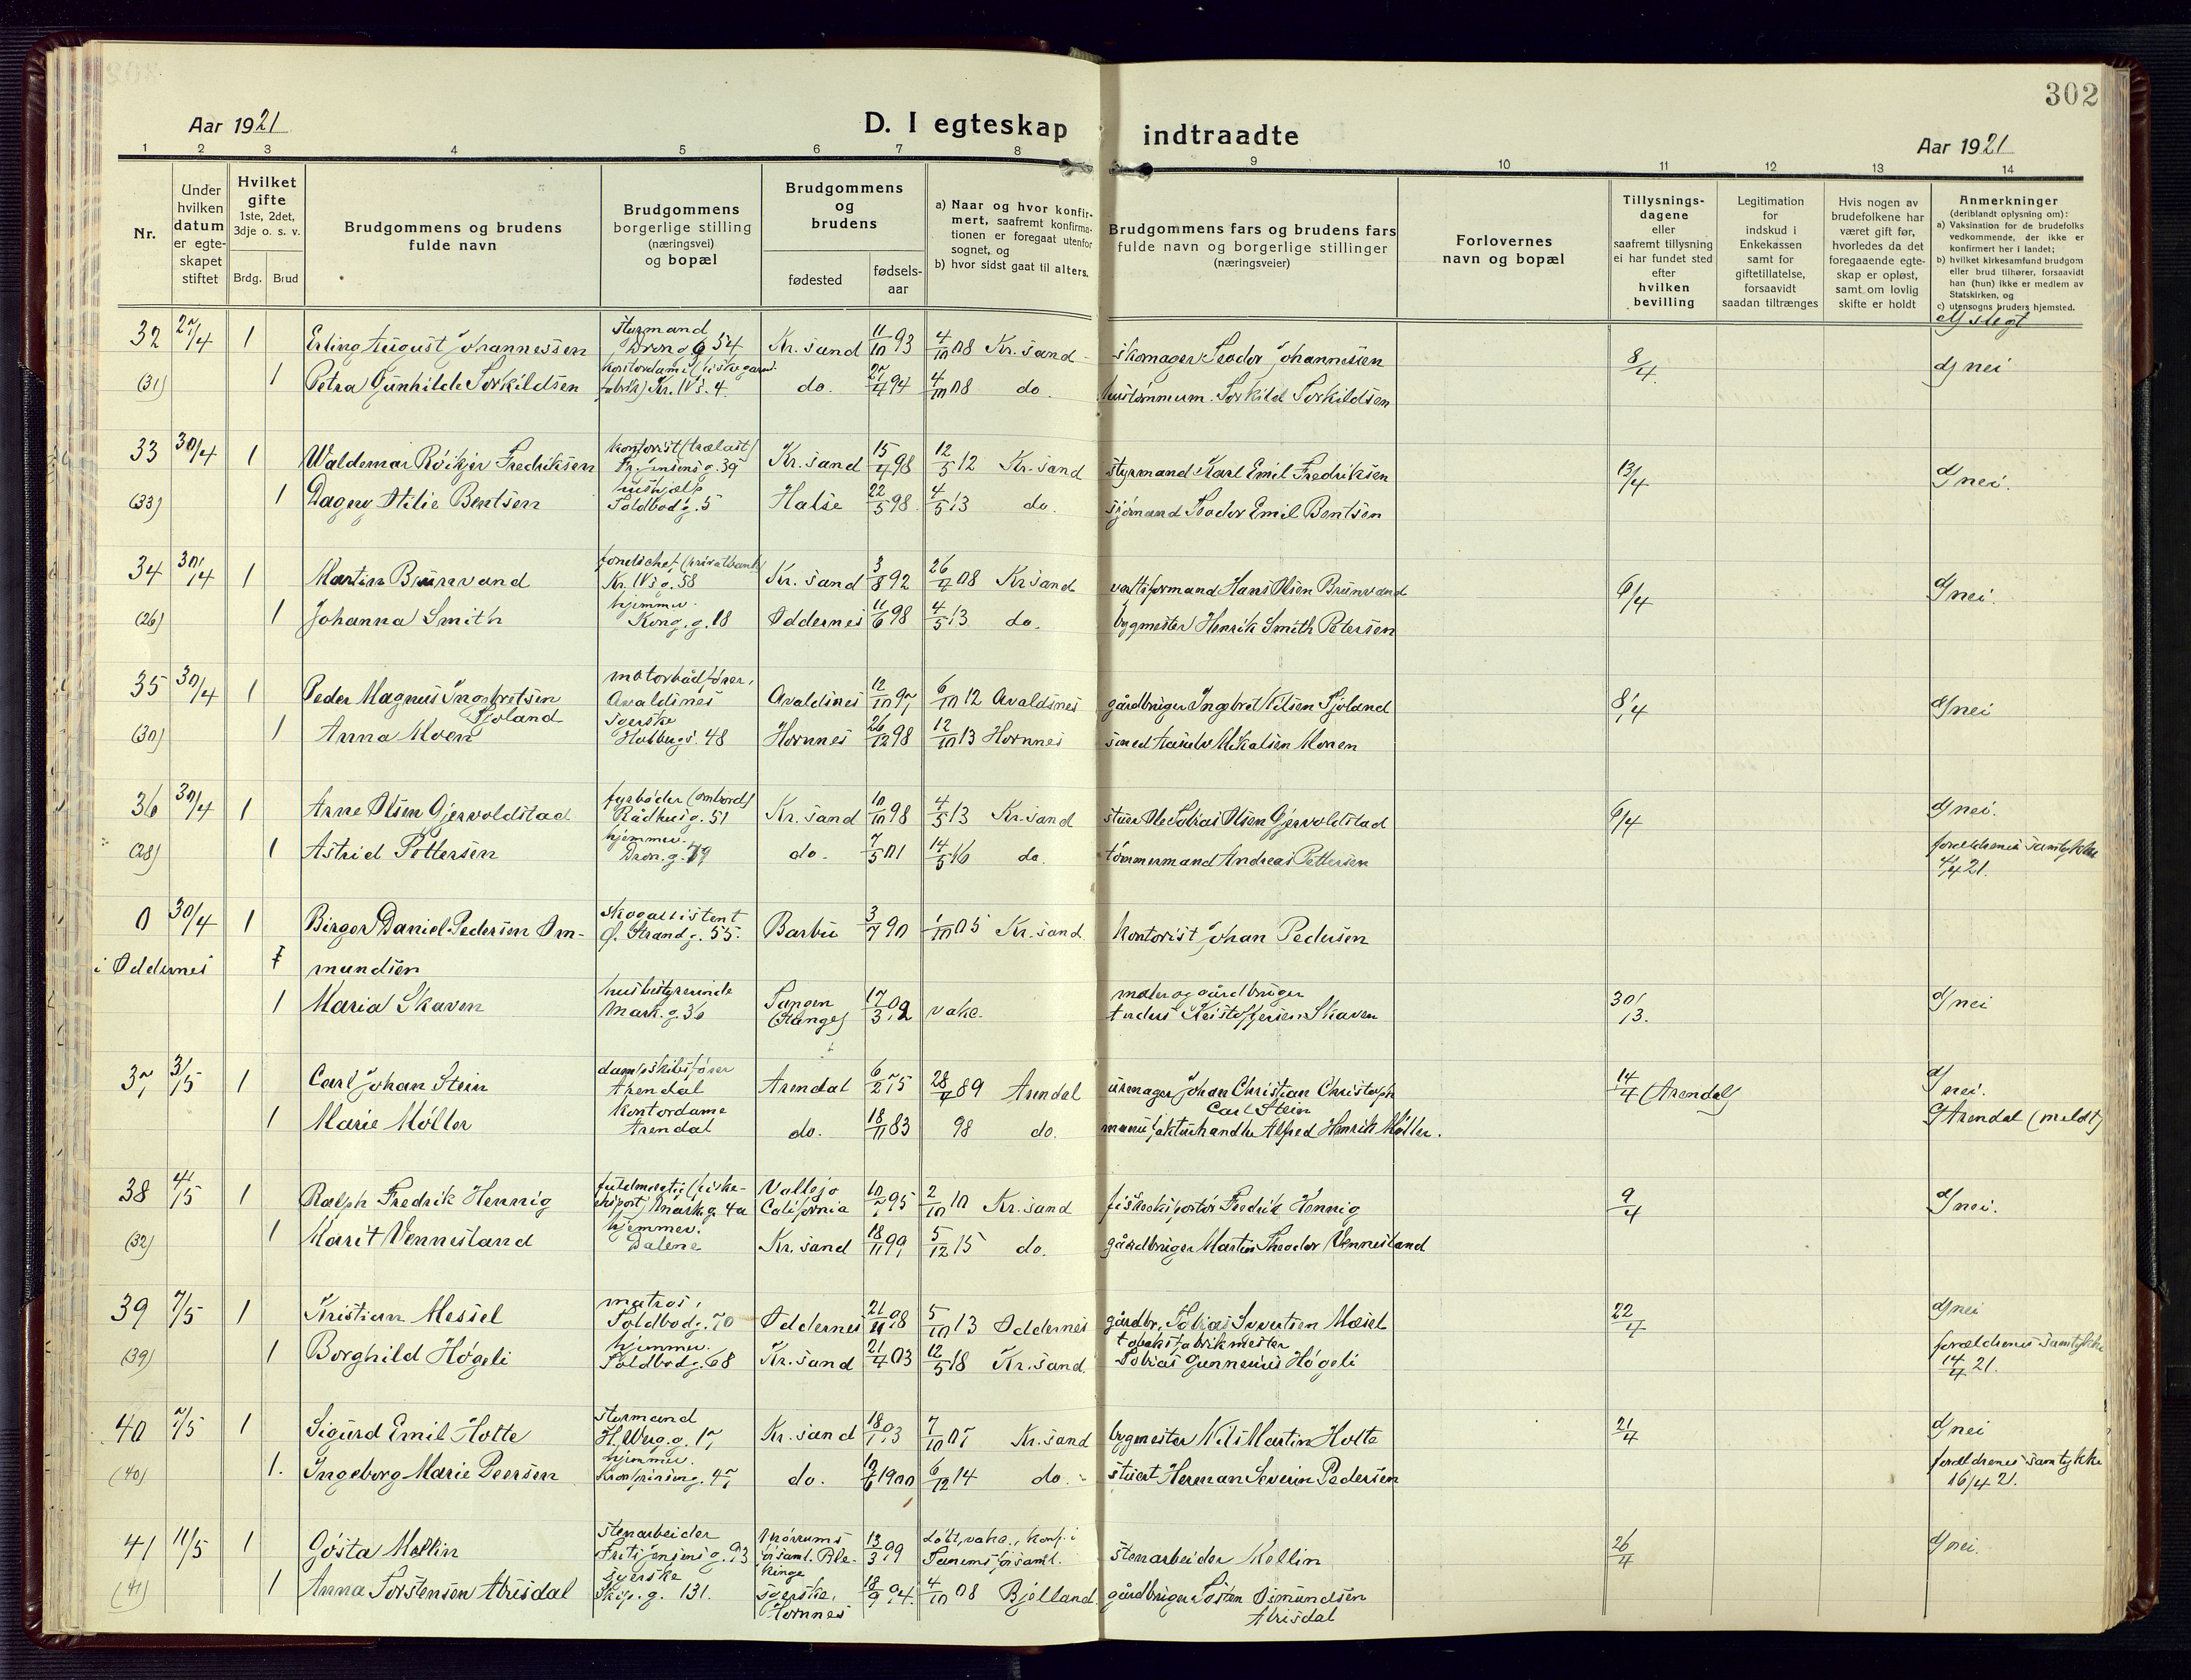 302
Aar 1921
D. I egteskap
indtraadte
Aar 1921
1 2 3 4 5 6 7 8 9 10 11 12 13 14
Nr.
Under hvilken datum er egte-skapet stiftet
Hvilket gifte
1ste, 2det, 3dje o. s. v.
Brdg. Brud
Brudgommens og brudens
fulde navn
Brudgommens
borgerlige stilling
(næringsvei)
og bopæl
Brudgommens
og
brudens
fødested
fødsels-
aar
a) Naar og hvor konfir-
mert, saafremt konfirma-
tionen er foregaat utenfor
sognet, og
b) hvor sidst gaat til alters.
Brudgommens fars og brudens fars
fulde navn og borgerlige stillinger
(næringsveier)
Forlovernes
navn og bopæl
Tillysnings-
dagene
eller
saafremt tillysning
ei har fundet sted
efter
hvilken
bevilling
Legitimation
for
indskud i
Enkekassen
samt for
giftetillatelse,
forsaavidt
saadan tiltrænges
Hvis nogen av
brudefolkene har
været gift før,
hvorledes da det
foregaaende egte-
skap er opløst,
samt om lovlig
skifte er holdt
Anmerkninger
(deriblandt oplysning om):
a) Vaksination for de brudefolks
vedkommende, der ikke er
konfirmert her i landet;
b) hvilket kirkesamfund brudgom
eller brud tilhører, forsaavidt
han (hun) ikke er medlem av
Statskirken, og
c) utensogns bruders hjemsted.
d) slegt
32 27/4 1 Erling August Johannessen styrmand Dron.g 54 Kr.sand 11/10 93 4/10 08 Kr.sand skomager Teodor Johannessen 8/4 d) nei
(31) 1 Petra Gunhilde Torkildsen kontordame Kr. IVs. 4 do. 27/4 94 4/10 08 do. Torkild Torkildsen
33 30/4 1 Waldemar Röikjer Fredriksen kontorist (trælast) Fr. Jensens g. 39 Kr.sand 15/4 98 12/5 12 Kr.sand styrmand Karl Emil Fredriksen 13/4 d) nei.
(33) 1 Dagny Otilie Bentsen hushjælp Toldbodg. 5 Halse 22/5 98 4/5 13 do. sjömand Teodor Emil Bentsen
34 30/4 1 Martin Brunvand fondschef (privatbank) Kr. IVs g. 58 Kr.sand 3/8 92 26/4 08 Kr.sand verftsformand Hans Olsen Brunvand 6/4 d) nei.
(26) 1 Johanna Smith hjemmev. Kong.g. 18 Oddernes 11/6 98 4/5 13 do. bygmester Henrik Smith Petersen
35 30/4 1 Peder Magnus Ingebretsen Sjoland motorbådfører, Avaldsnes Avaldsnes 12/10 97 6/10 12 Avaldsnes gårdbruger Ingebret Nilsen Sjoland 8/4 d) nei
(30) 1 Anna Moen syerske Holbergs. 48 Hornnes 26/12 98 12/10 13 Hornnes smed Mikalsen Monen
36 30/4 1 Arne Olsen Gjervoldstad fyrbøder (ombord) Rådhusg. 51 Kr.sand 10/10 98 4/5 13 Kr.sand stuer Ole Tobias Olsen Gjervoldstad 6/4 d) nei.
(28) 1 Astrid Pettersen hjemmev. Dron.g. 79 do. 7/5 01 14/5 16 do. tömmermand Andreas Pettersen forældrenes samtykke 4/4 21.
0 30/4 1 Birger Daniel Pedersen Om- skogassistent Ø. Strandg. 55. Barbu 3/7 90 1/10 05 Kr.sand kontorist Johan Pedersen
i Oddernes mundsen
1 Maria Skaven husbestyrerinde Mark.g. 36 Tangen (Stange) 17/3 92 vake. maler og gårdbruger Anders Kristoffersen Skaven 30/3. d) nei
37 3/5 1 Carl Johan Stein dampskibsfører Arendal Arendal 6/2 75 28/4 89 Arendal urmager Johan Christian Christoph Carl Stein 14/4 (Arendal) d) nei.
1 Marie Möller kontordame Arendal do. 18/11 83 98 do. manufakturhandler Alfred Henrik Möller. c) Arendal (meldt)
38 4/5 1 Ralph Fredrik Hennig fuldmægtig (fiske-eksport) Markg. 4a Vallejo California 10/7 95 2/10 10 Kr.sand fiskeeksportör Fredrik Hennig 9/4 d) nei.
(32) 1 Marit Vennesland hjemmev. Dalene Kr.sand 18/11 99 5/12 15 do. gårdbruger Martin Theodor Vennesland
39 7/5 1 Kristian Messel matros, Toldbodg. 70 Oddernes 21/11 98 5/10 13 Oddernes gårdbr. Tobias Syvertsen Mesel 22/4 d) nei
(39) 1 Borghild Høgeli hjemmev. Toldbodg. 68 Kr.sand 21/4 03 12/5 18 Kr.sand. tobaksfabrikmester Tobias Gunnenius Høgeli forældrenes samtykke 14/4 21.
40 7/5 1 Sigurd Emil Holte styrmand H. Werg.g. 17 Kr.sand 18/1 93 7/10 07 Kr.sand bygmester Nils Martin Holte 21/4 d) nei
(40) 1. Ingeborg Marie Peersen hjemmev. Kronprinseng. 47 do. 10/6 1900 6/12 14 do. stuert Herman Severin Pedersen forældrenes samtykke 16/4 21.
41 11/5 1 Gösta Mellin stenarbeider Fritz Jensens g. 93 Mörrums församl. Ble-kinge 13/3 99 döbt, vake., konf. i Tanums församl. stenarbeider Mellin 26/4 d) nei.
(41) 1 Anna Torstensen Åbrisdal syerske Skip.g. 131. syerske, Hornnes 18/9 94. 4/10 08 Bjelland. gårdbruger Tosten Åsmundsen Abrisdal